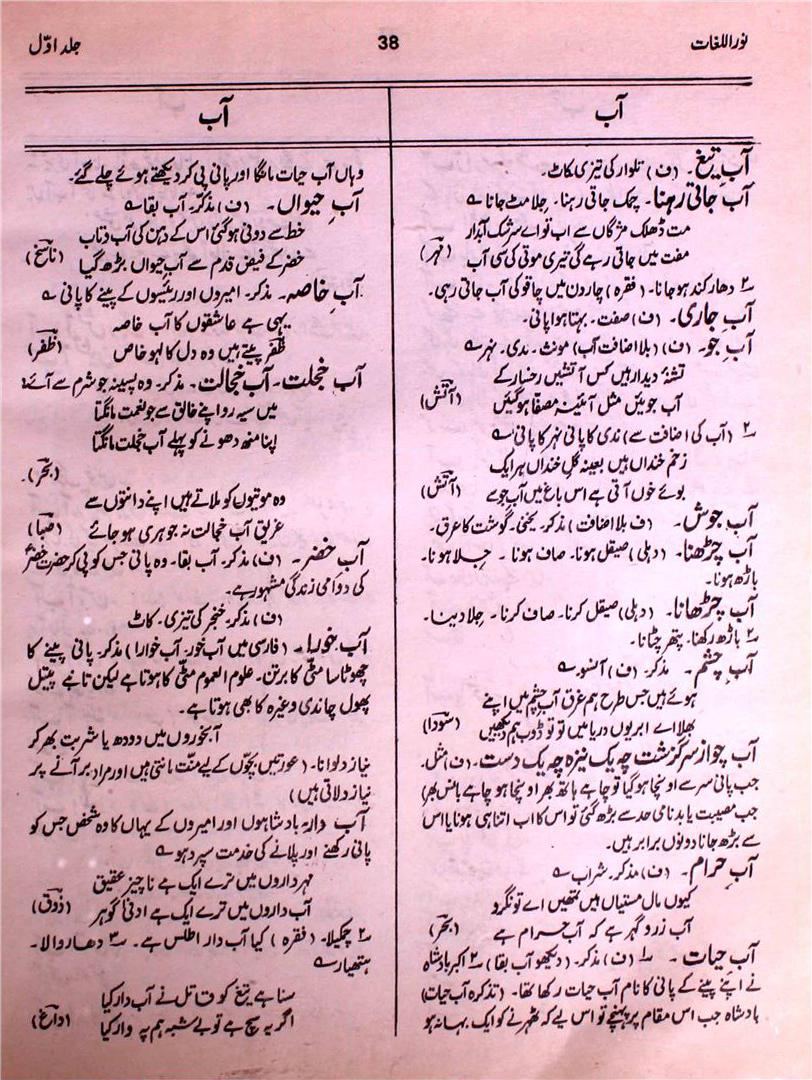 نوراللغات
38
جلد اوّل
آب
آب
آبِ تیغ۔ (ف) تلوار کی تیزی۔ کاٹ۔
آب جاتی رہنا۔ چمک جاتی رہنا۔ جِلا مٹ جانا ؎
مت ڈھلک مژگاں سے اب تو اے سرشک آبدار
مفت میں جاتی رہے گی تیری موتی کی سی آب
۲؎ دھار کند ہوجانا۔ (فقرہ) چار دن میں چاقو کی آب جاتی رہی۔
آبِ جاری۔ (ف) صفت۔ بہتا ہوا پانی۔
آب جو۔ (ف) (بلا اضافت آب) مونث۔ ندی۔ نہر ؎
تشنۂ دیدار ہیں کس آتشیں رخسار کے
آب جوئیں مثل آئینہ مصفا ہوگئیں (آتش)
۲؎ (آب کی اضافت سے) ندی کا پانی نہر کا پانی ؎
زخم خنداں ہیں بعینہ گلِ خنداں ہر ایک
بوئے خوں آتی ہے اس باغ میں آب جو سے (آتش)
آب جوش۔ (ف بلا اضافت) مذکر۔ یخنی۔ گوشت کا عرق۔
آب چڑھنا۔ (دہلی) صیقل ہونا۔ صاف ہونا ۔ جِلا ہونا۔
باڑھ ہونا۔
آب چڑھانا۔ (دہلی) صیقل کرنا۔ صاف کرنا ۔ جِلا دینا۔
۲؎ باڑھ رکھنا۔ پتھر چٹانا۔
آبِ چشم۔ مذکر۔ (ف) آنسو ؎
ہوئے ہیں جس طرح ہم غرق آبِ چشم میں اپنے
بھلا اے ابر یوں دریا میں تو تو ڈوب ہم دیکھیں (سودا)
آب چو از سر گزشت چہ یک نیزہ چہ یک دست۔ (ف) مثل۔
جب پانی سر سے اونچا ہو گیا تو چاہے ہاتھ بھر اونچا ہو چاہے بانس بھر)
جب مصیبت یا بدنامی حد سے بڑھ گئی تو اس کا اب اتنا ہی ہونا یا اس
سے بڑھ جانا دونوں برابر ہیں۔
آبِ حرام۔ (ف) مذکر۔ شراب ؎
کیوں مال مستیاں ہیں تمھیں اے تونگرو
آب زر و گہر ہے کہ آب حرام ہے (بحر)
آبِ حیات۔ ۱؎ (ف) مذکر۔ (دیکھو آب بقا) ۲؎ اکبر بادشاہ
نے اپنے پینے کے پانی کا نام آب حیات رکھا تھا۔ (تذکرہ آب حیات)
بادشاہ جب اس مقام پر پہنچے تو اس لیے کہ ٹھہرنے کو ایک بہانہ ہو
وہاں آب حیات مانگا اور پانی پی کر دیکھتے ہوئے چلے گئے۔
آبِ حیواں۔ (ف) مذکر۔ آب بقا ؎
خط سے دونی ہوگئی اس کے دہن کی آب و تاب
خضر کے فیض قدم سے آبِ حیواں بڑھ گیا (ناسخ)
آبِ خاصہ۔ مذکر۔ امیروں اور رئیسوں کے پینے کا پانی ؎
یہی ہے عاشقوں کا آب خاصہ
ظفر پیتے ہیں وہ دل کا لہو خاص (ظفر)
آبِ خجلت۔ آب خجالت۔ مذکر۔ وہ پسینہ جو شرم سے آئے ؎
میں سیہ رو اپنے خالق سے جو نعمت مانگتا
اپنا منھ دھونے کو پہلے آب خجلت مانگتا
(بحر)۔
وہ موتیوں کو ملاتے ہیں اپنے دانتوں سے
غریق آب خجالت نہ جوہری ہو جائے (صبا)
آبِ خضر۔ (ف) مذکر۔ آب بقا۔ وہ پانی جس کو پی کر حضرت خضر
کی دوامی زندگی مشہور ہے۔
(ف) مذکر۔ خنجر کی تیزی۔ کاٹ
آب خورا۔ (فارسی میں آب خور۔ آب خوارا) مذکر۔ پانی پینے کا
چھوٹا سا مٹی کا برتن۔ علوم العموم مٹی کا ہوتا ہے لیکن تانبے پیتل
پھول چاندی وغیرہ کا بھی ہوتا ہے۔
آبخوروں میں دودھ یا شربت بھر کر
نیاز دلوانا۔ (عورتیں بچوں کے لیے منّت مانتی ہیں اور مراد بر آنے پر
نیاز دلاتی ہیں)
آب دار۔ بادشاہوں اور امیروں کے یہاں کا وہ شخص جس کو
پانی رکھنے اور پلانے کی خدمت سپرد ہو ؎
مہرداروں میں ترے ایک ہے ناچیز عقیق
آب داروں میں ترے ایک ہے ادنیٰ گوہر (ذوق)
۲؎ چمکیلا۔ (فقرہ) کیا آب دار اطلس ہے۔ ۳؎ دھار والا۔
ہتھیار ؎
سنا ہے تیغ کو قاتل نے آب دار کیا
اگر یہ سچ ہے تو بے شبہ ہم پہ وار کیا (داغ)